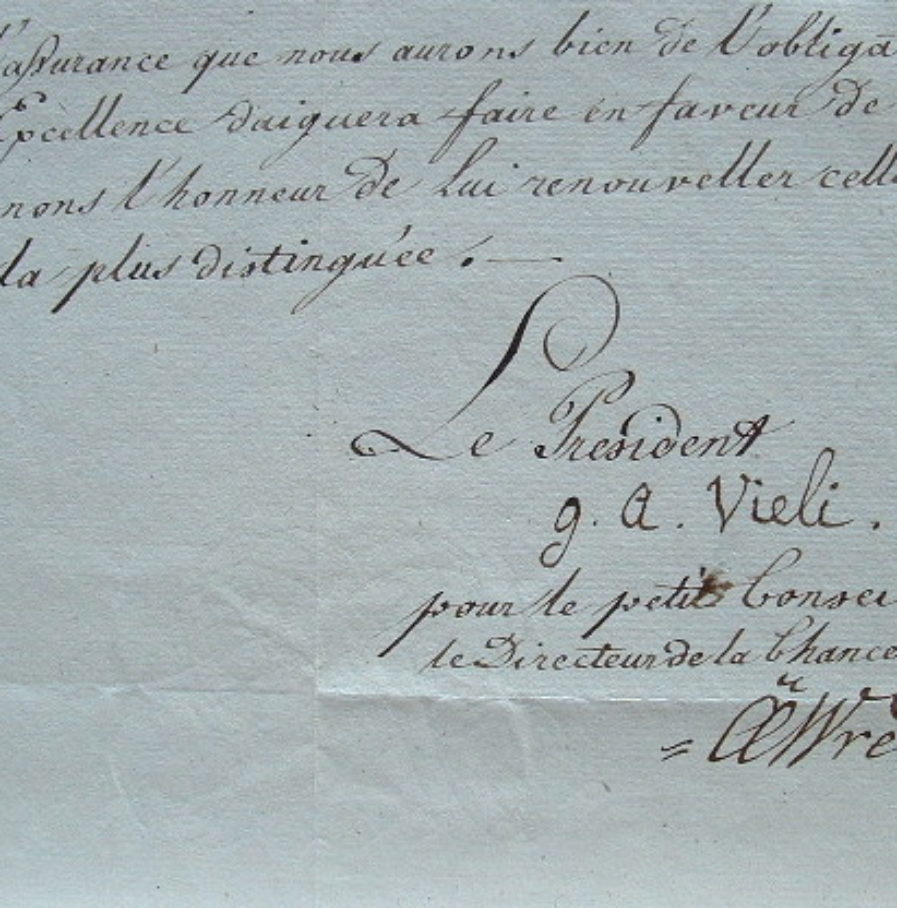 l'assurance que nous aurons bien de l'obliga
Excellence daiguera faire en faveur de
nons l'honneur de Lui renouveller cell
la plus distinguée. —
Le President
g. a. Vieli.
pour le petit Consei
le Directeur de la Chance